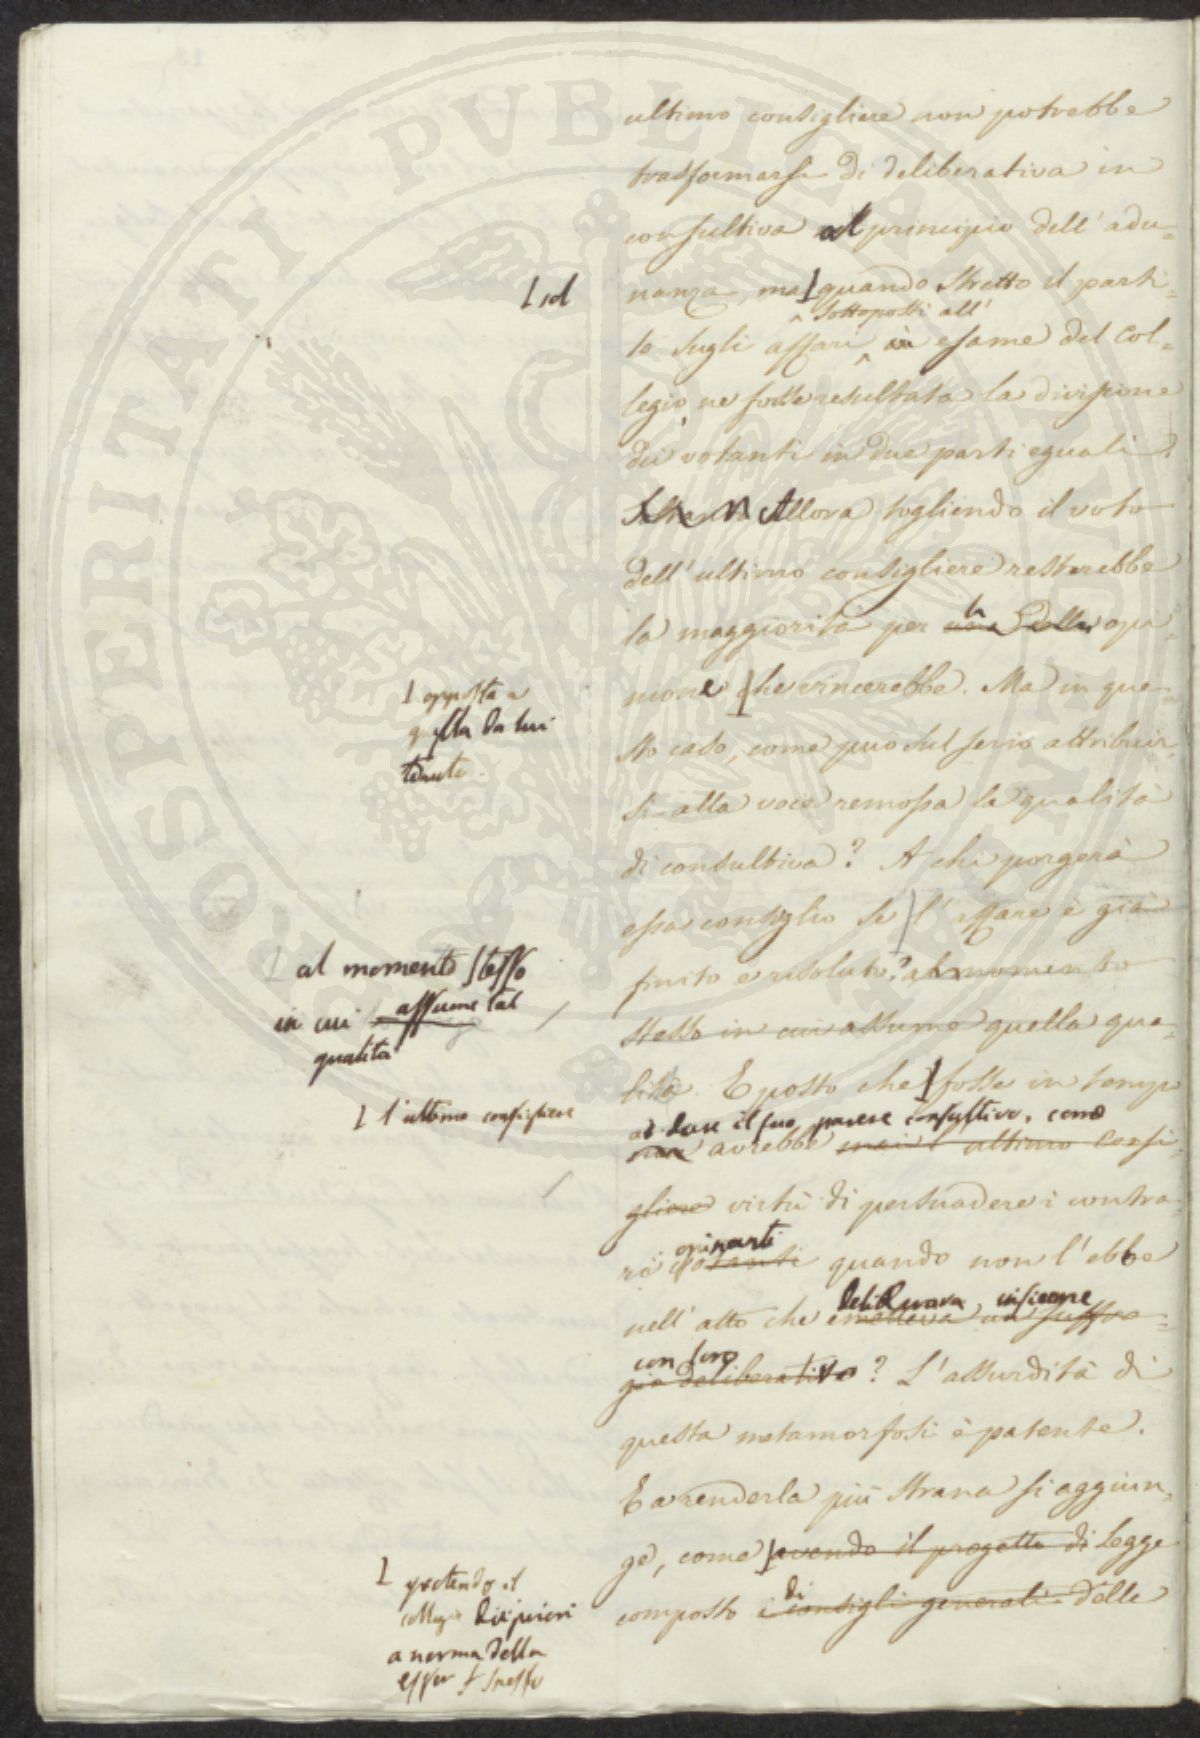 ultimo consigliere non potrebbe
trasformarsi di deliberativa in
consultiva al principio dell'adu=
nanza, ma quando stretto il parti=
sottoposti all'
to sugli affari in esame del Col=
legio ne fosse resultata la divisione
dei votanti in due parti eguali.
Allora togliendo il voto
dell'ultimo consigliere resterebbe
la maggiorità per la opi=
nione che vincerebbe. Ma in que=
sto caso, come può sul serio attribuir=
si alla voce remossa la qualità
di consultiva? A chi porgerà
essa consiglio se l'affare è già
finito e risoluto? al momento
stesso in cui assume quella qua=
lità. E posto che fosse in tempo
a dare il suo parere consultivo, come
non avrebbe mai l'ultimo Consi=
gliere virtù di persuadere i contra=
opinanti
ri votanti quando non l'ebbe
deliberava insieme
nell'atto che emetteva un suffra=
con loro
gio deliberativo? L'assurdità di
questa metamorfosi è patente.
E a renderla più strana si aggiun=
ge, come avendo il progetto di Legge
di
composto i consigli generali delle
id
opposta a
quella da lui
tenuta.
al momento stesso
in cui assume tal
qualità
l'ultimo consigliere
potendo il
a norma della
PROSPERITATI PVBLICAE